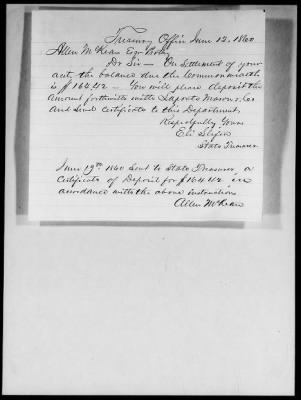 Treasury Office June 12, 1860
Allen McKean Esq Prothy
Dr Sir — On Settlement of your
acct. the balance due the Commonwealth
is $164.42 — You will please deposit the
amount forthwith with Laporte Mason & Co
and send certificate to this Department.
Respectfully Yours
Eli Slifer
State Treasurer
June 19th 1860 Sent to State Treasurer a
Certificate of Deposit for $164.42 in
accordance with the above instructions
Allen McKean